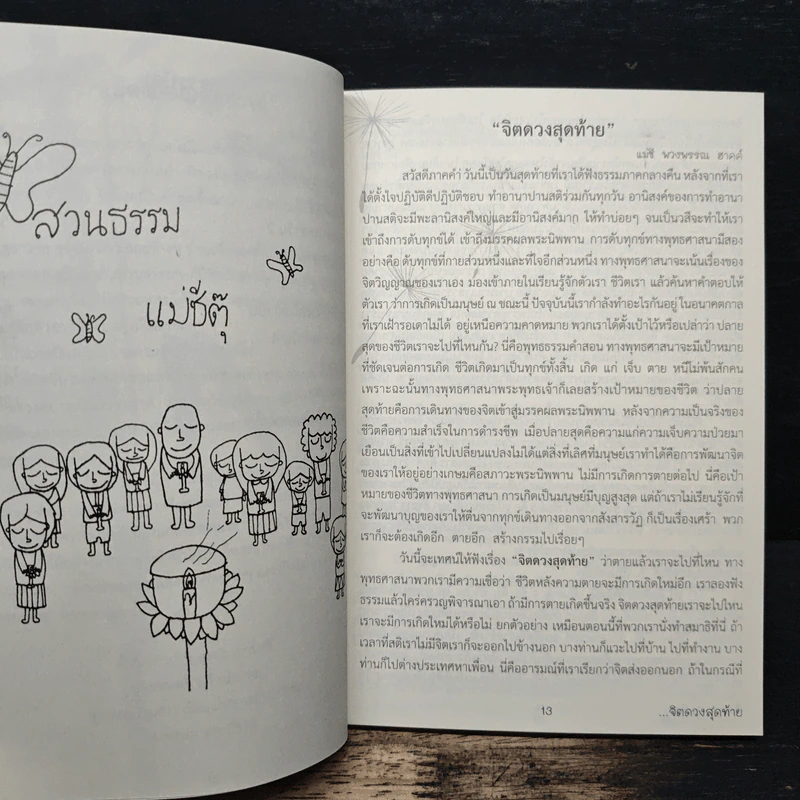 สวนธรรม
แม่ชีตุ๊
“จิตดวงสุดท้าย”
แม่ชี พวงพรรณ ฮาคค์
สวัสดีภาคค่ำ วันนี้เป็นวันสุดท้ายที่เราได้ฟังธรรมภาคกลางคืน หลังจากที่เรา
ได้ตั้งใจปฏิบัติดีปฏิบัติชอบ ทำอานาปานสติร่วมกันทุกวัน อานิสงค์ของการทำอานา
ปานสติจะมีพะลานิสงค์ใหญ่และมีอานิสงค์มาก ให้ทำบ่อยๆ จนเป็นวสีจะทำให้เรา
เข้าถึงการดับทุกข์ได้ เข้าถึงมรรคผลพระนิพพาน การดับทุกข์ทางพุทธศาสนามีสอง
อย่างคือ ดับทุกข์ที่กายส่วนหนึ่งและที่ใจอีกส่วนหนึ่ง ทางพุทธศาสนาจะเน้นเรื่องของ
จิตวิญญาณของเราเอง มองเข้าภายในเรียนรู้จักตัวเรา ชีวิตเรา แล้วค้นหาคำตอบให้
ตัวเรา ว่าการเกิดเป็นมนุษย์ ณ ขณะนี้ ปัจจุบันนี้เรากำลังทำอะไรกันอยู่ ในอนาคตกาล
ที่เราเฝ้ารอเดาไม่ได้ อยู่เหนือความคาดหมาย พวกเราได้ตั้งเป้าไว้หรือเปล่าว่า ปลาย
สุดของชีวิตเราจะไปที่ไหนกัน? นี่คือพุทธธรรมคำสอน ทางพุทธศาสนาจะมีเป้าหมาย
ที่ชัดเจนต่อการเกิด ชีวิตเกิดมาเป็นทุกข์ทั้งสิ้น เกิด แก่ เจ็บ ตาย หนีไม่พ้นสักคน
เพราะฉะนั้นทางพุทธศาสนาพระพุทธเจ้าก็เลยสร้างเป้าหมายของชีวิต ว่าปลาย
สุดท้ายคือการเดินทางของจิตเข้าสู่มรรคผลพระนิพพาน หลังจากความเป็นจริงของ
ชีวิตคือความสำเร็จในการดำรงชีพ เมื่อปลายสุดคือความแก่ความเจ็บความป่วยมา
เยือนเป็นสิ่งที่เข้าไปเปลี่ยนแปลงไม่ได้แต่สิ่งที่เลิศที่มนุษย์เราทำได้คือการพัฒนาจิต
ของเราให้อยู่อย่างเกษมคือสภาวะพระนิพพาน ไม่มีการเกิดการตายต่อไป นี่คือเป้า
หมายของชีวิตทางพุทธศาสนา การเกิดเป็นมนุษย์มีบุญสูงสุด แต่ถ้าเราไม่เรียนรู้จักที่
จะพัฒนาบุญของเราให้ตื่นจากทุกข์เดินทางออกจากสังสารวัฏ ก็เป็นเรื่องเศร้า พวก
เราก็จะต้องเกิดอีก ตายอีก สร้างกรรมไปเรื่อยๆ
วันนี้จะเทศน์ให้ฟังเรื่อง “จิตดวงสุดท้าย” ว่าตายแล้วเราจะไปที่ไหน ทาง
พุทธศาสนาพวกเรามีความเชื่อว่า ชีวิตหลังความตายจะมีการเกิดใหม่อีก เราลองฟัง
ธรรมแล้วใคร่ครวญพิจารณาเอา ถ้ามีการตายเกิดขึ้นจริง จิตดวงสุดท้ายเราจะไปไหน
เราจะมีการเกิดใหม่ได้หรือไม่ ยกตัวอย่าง เหมือนตอนนี้ที่พวกเรานั่งทำสมาธิที่นี่ ถ้า
เวลาที่สติเราไม่มีจิตเราก็จะออกไปข้างนอก บางท่านก็แวะไปที่บ้าน ไปที่ทำงาน บาง
ท่านก็ไปต่างประเทศหาเพื่อน นี่คืออารมณ์ที่เราเรียกว่าจิตส่งออกนอก ถ้าในกรณีที่
13
...จิตดวงสุดท้าย